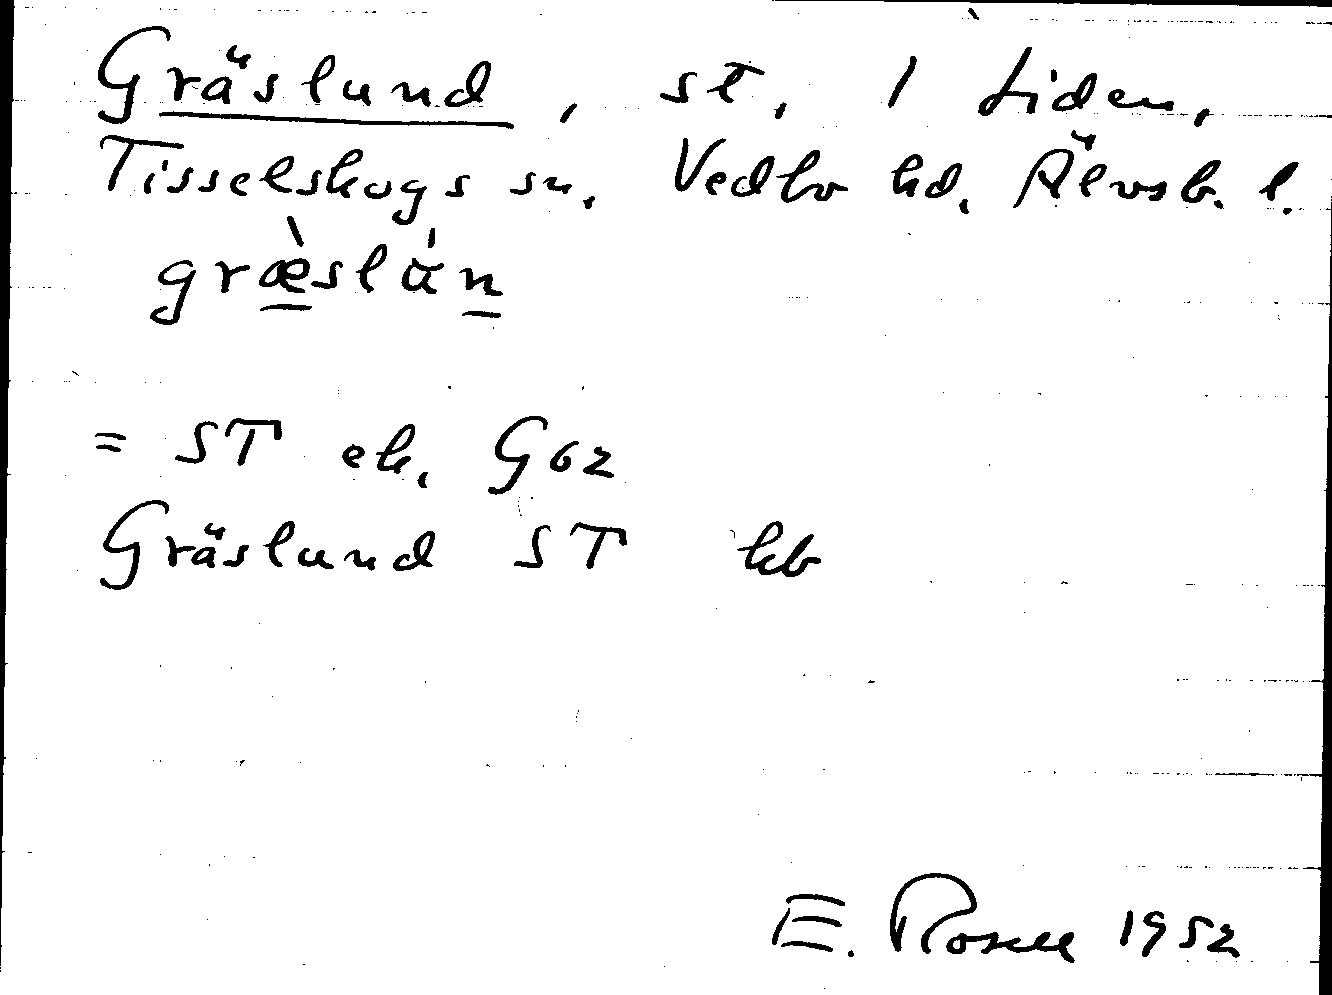 Gräslund, st. 1 Liden,
Tisselskogs sn. Vedbo hd. Älvsb. l.
græ̀slún
= ST ek. G62
Gräslund ST hb
E. Rosell 1952